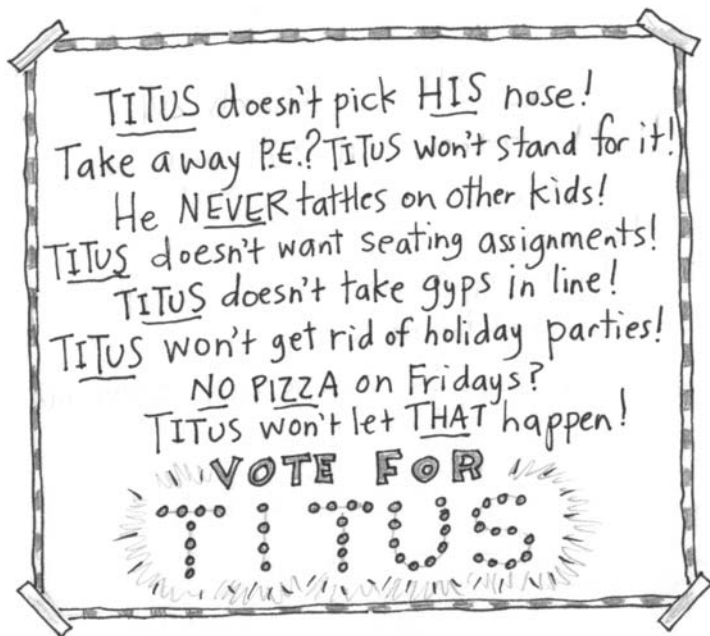 TITUS doesn't pick HIS nose!
Take away P.E.? TITUS won't stand for it!
He NEVER tattles on other kids!
TITUS doesn't want seating assignments!
TITUS doesn't take gyps in line!
TITUS won't get rid of holiday parties!
NO PIZZA on Fridays?
TITUS won't let THAT happen!
VOTE FOR
TITUS